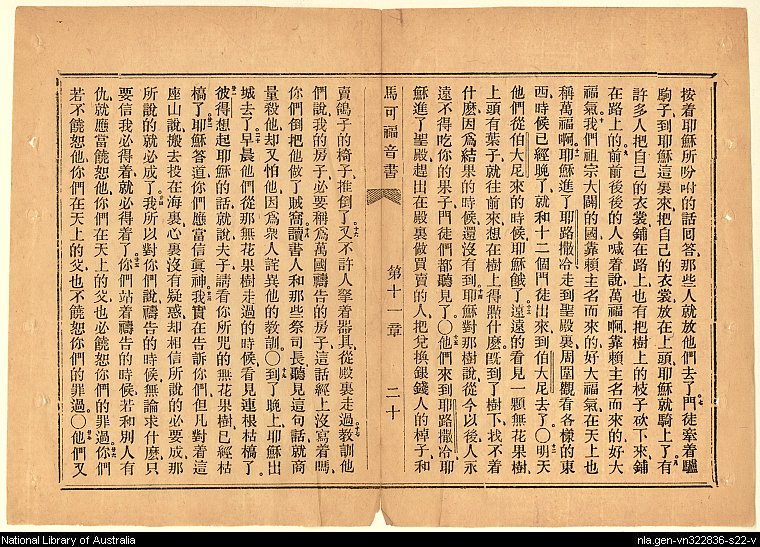 按着耶穌所吩咐的話回答、那些人就放他們去了、門徒牽着驢
駒子到耶穌這裏來、把自己的衣裳放在上頭、耶穌就騎上了、有
許多人把自己的衣裳鋪在路上、也有把樹上的枝子砍下來、鋪
在路上的、前前後後的人、喊着說、萬福啊、靠賴主名而來的、好大
福氣、我們祖宗大闢的國、靠賴主名而來的、好大福氣、在天上也
稱萬福啊、耶穌進了耶路撒冷、走到聖殿裏、周圍觀看各樣的東
西、時候已經晚了、就和十二個門徒出來、到伯大尼去了、〇明天
他們從伯大尼來的時候、耶穌餓了、遠遠的看見一顆無花果樹、
上頭有葉子、就往前來、想在樹上得點什麼、既到了樹下、找不着
什麼、因爲結果的時候還沒有到、耶穌對那樹說、從今以後、人永
遠不得吃你的果子、門徒們都聽見了、〇他們來到耶路撒冷、耶
穌進了聖殿、趕出在殿裏做買賣的人、把兌換銀錢人的棹子、和
馬可福音書 第十一章 二十
賣鴿子的椅子、推倒了、又不許人拏着器具、從殿裏走過、教訓他
們說、我的房子、必要稱爲萬國禱告的房子、這話經上沒寫着嗎、
你們倒把他做了賊窩、讀書人和那些祭司長、聽見這句話、就商
量殺他、却又怕他、因爲衆人詫異他的教訓、〇到了晚上、耶穌出
城去了、早晨、他們從那無花果樹走過的時候、看見連根枯槁了、
彼得想起耶穌的話、就說、夫子、請看你所咒的無花果樹、已經枯
槁了、耶穌答道、你們應當信眞神、我實在告訴你們、但凡對着這
座山說、搬去投在海裏、心裏沒有疑惑、却相信所說的必要成、那
所說的就必成了、我所以對你們說、禱告的時候、無論求什麼、只
要信我必得着、就必得着了、你們站着禱告的時候、若和別人有
仇、就應當饒恕他、你們在天上的父、也必饒恕你們的罪過、你們
若不饒恕他、你們在天上的父、也不饒恕你們的罪過、〇他們又
National Library of Australia
nla.gen-vn322836-s22-v